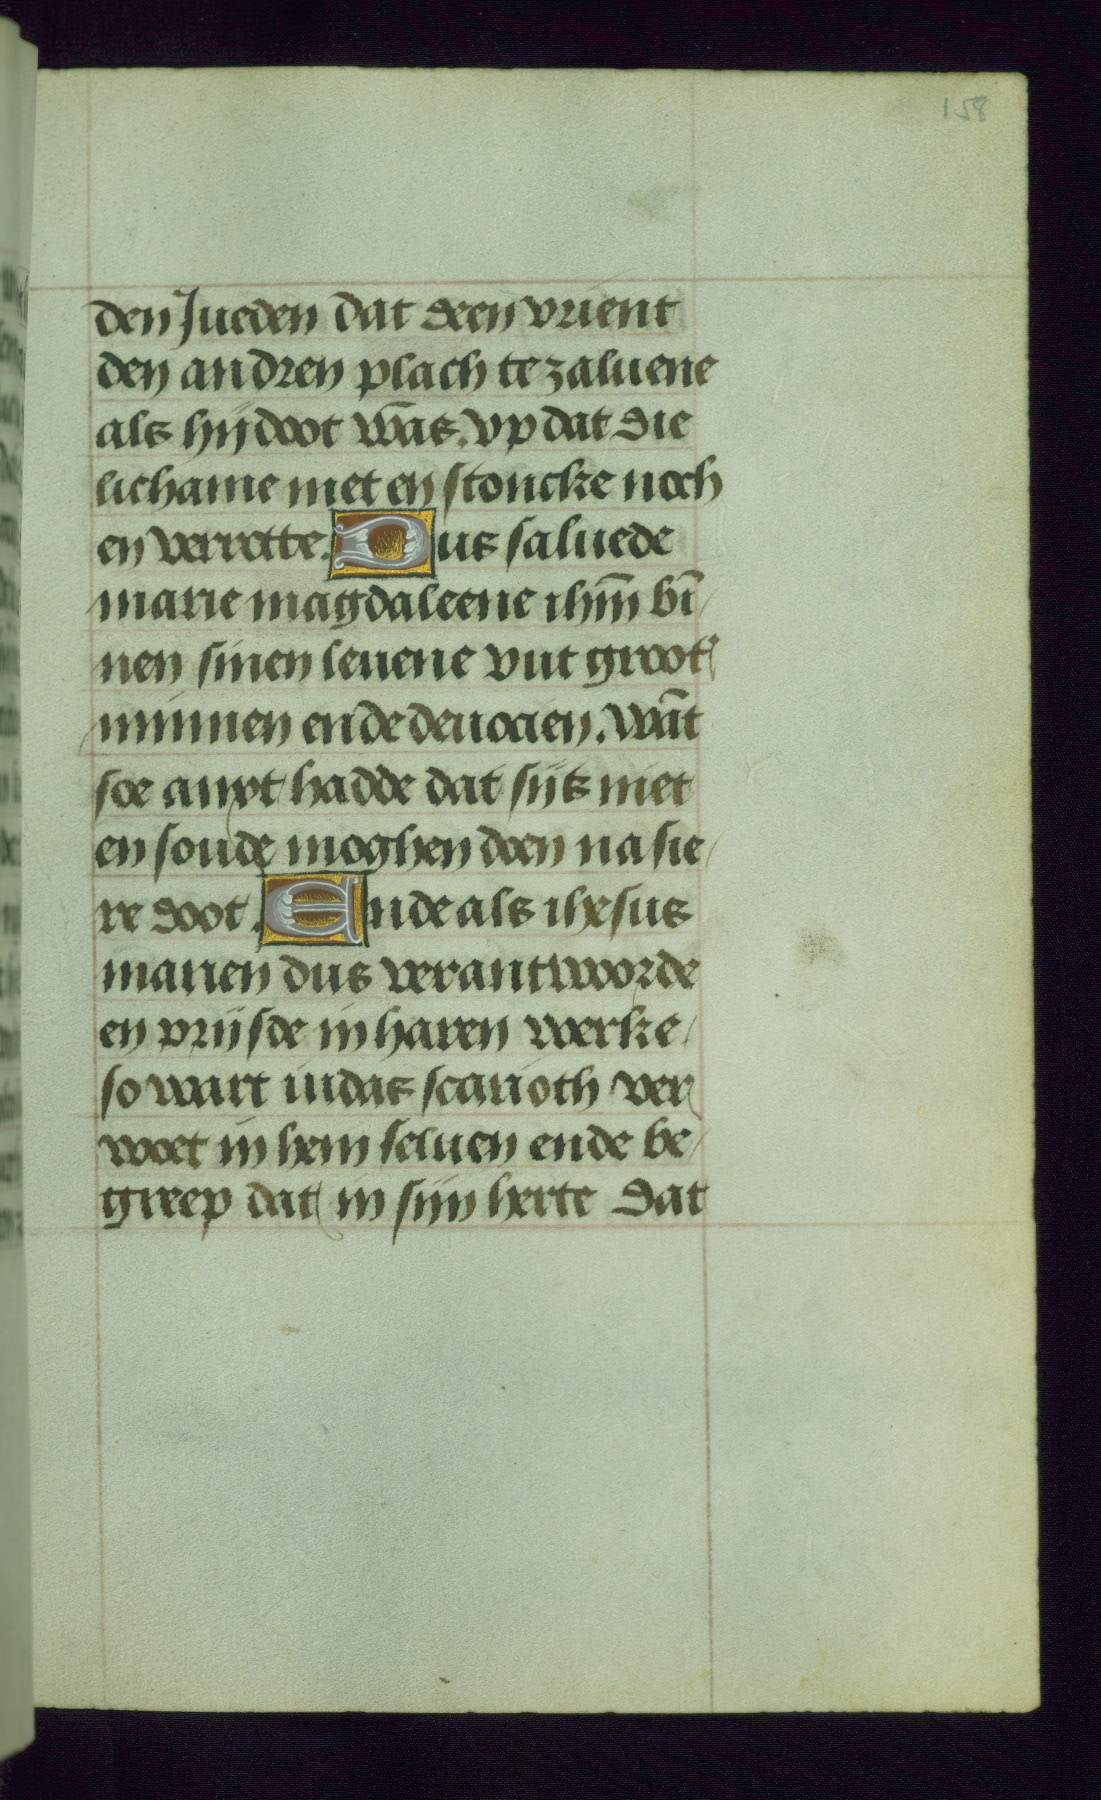 158
den Jueden dat deen vrient
den andren plach te zaluene
als hij doot was. Vp dat die
lichame niet en stoncke noch
en verrotte. Dus saluede
marie magdaleene ihm̄ bī
nen sinen leuene vut groot
minnen ende deuocien. Wāt
soe anxt hadde dat sijs niet
en soude moghen doen na sie
re doot. Ende als ihesus
marien dus verantwoorde
en prijsde in haren werke
so wart iudas scarioth ver
woet in hem seluen ende be
greep dat in sijn herte dat